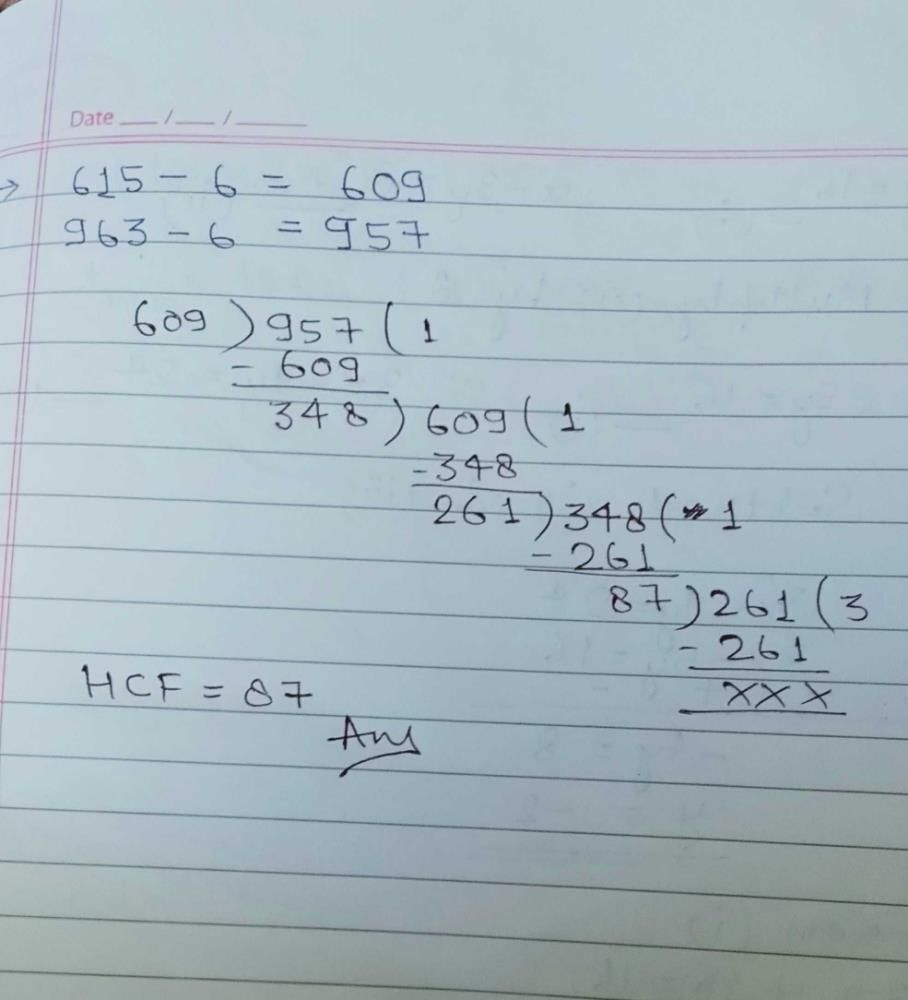 Date __/__/____
→ 615 - 6 = 609
963 - 6 = 957
609 ) 957 ( 1
- 609
348 ) 609 ( 1
- 348
261 ) 348 ( 1
- 261
87 ) 261 ( 3
- 261
XXX
HCF = 87
Ans